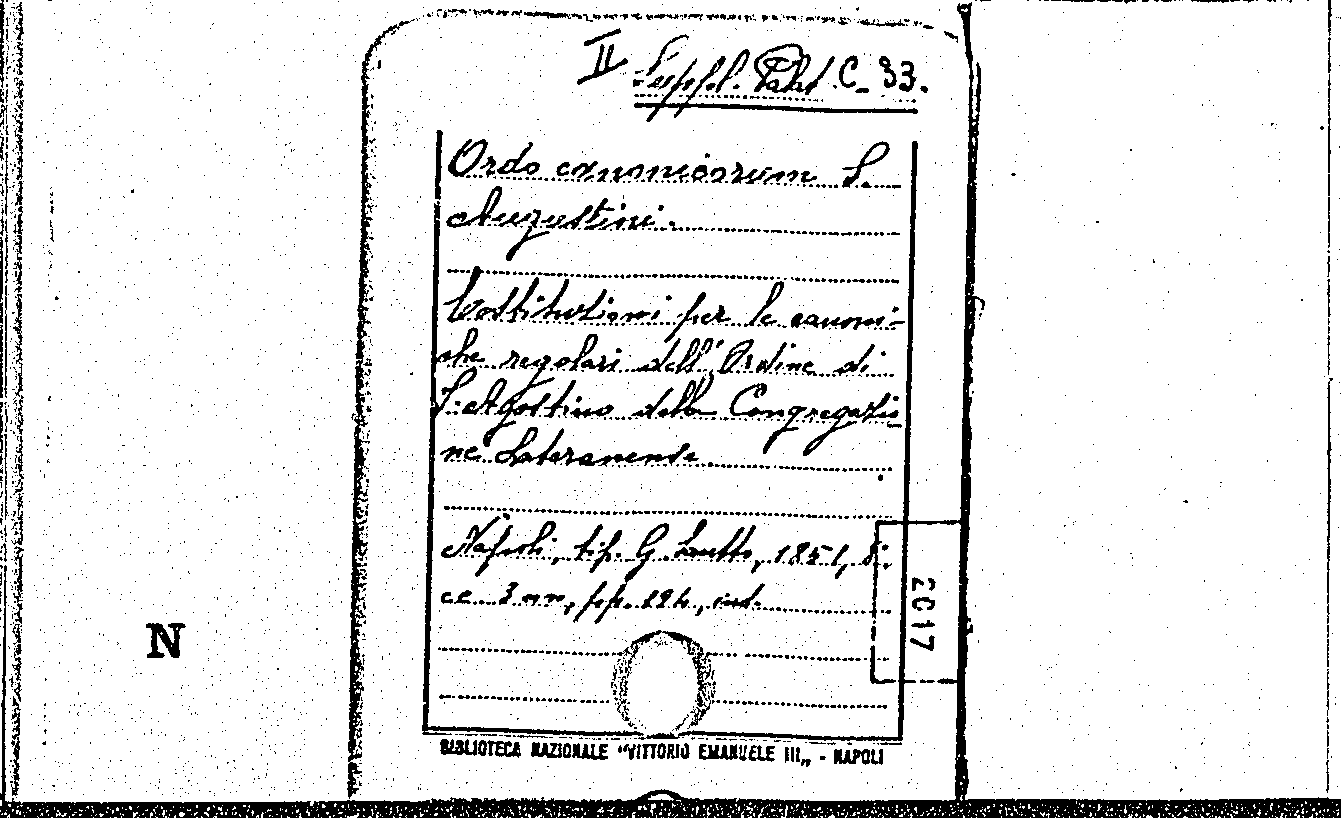 II Suppl. Palat C_ 33.
Ordo canonicorum S.
Augustini.
Costituzioni per le canoni-
che regolari dell'Ordine di
S. Agostino della Congregazio
ne Lateranense.
Napoli, tip. G. 1851, 8.
cc. 3 nn, pp. 192, ind.
2017
N
BIBLIOTECA NAZIONALE "VITTORIO EMANUELE III„ - NAPOLI